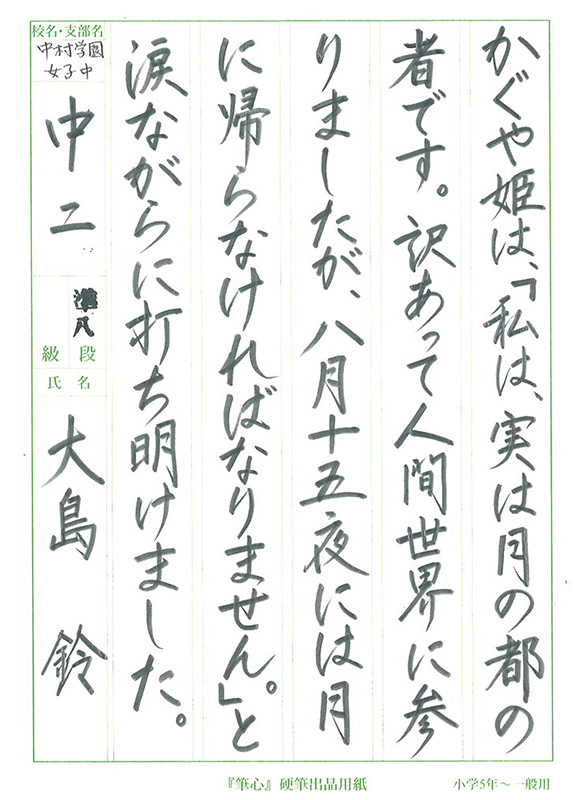 かぐや姫は、「私は、実は月の都の
者です。訳あって人間世界に参
りましたが、八月十五夜には月
に帰らなければなりません。」と
涙ながらに打ち明けました。
校名・支部名
中村学園
女子中
中二
準八
級 段
氏 名
大島 鈴
『筆心』硬筆出品用紙
小学5年〜一般用